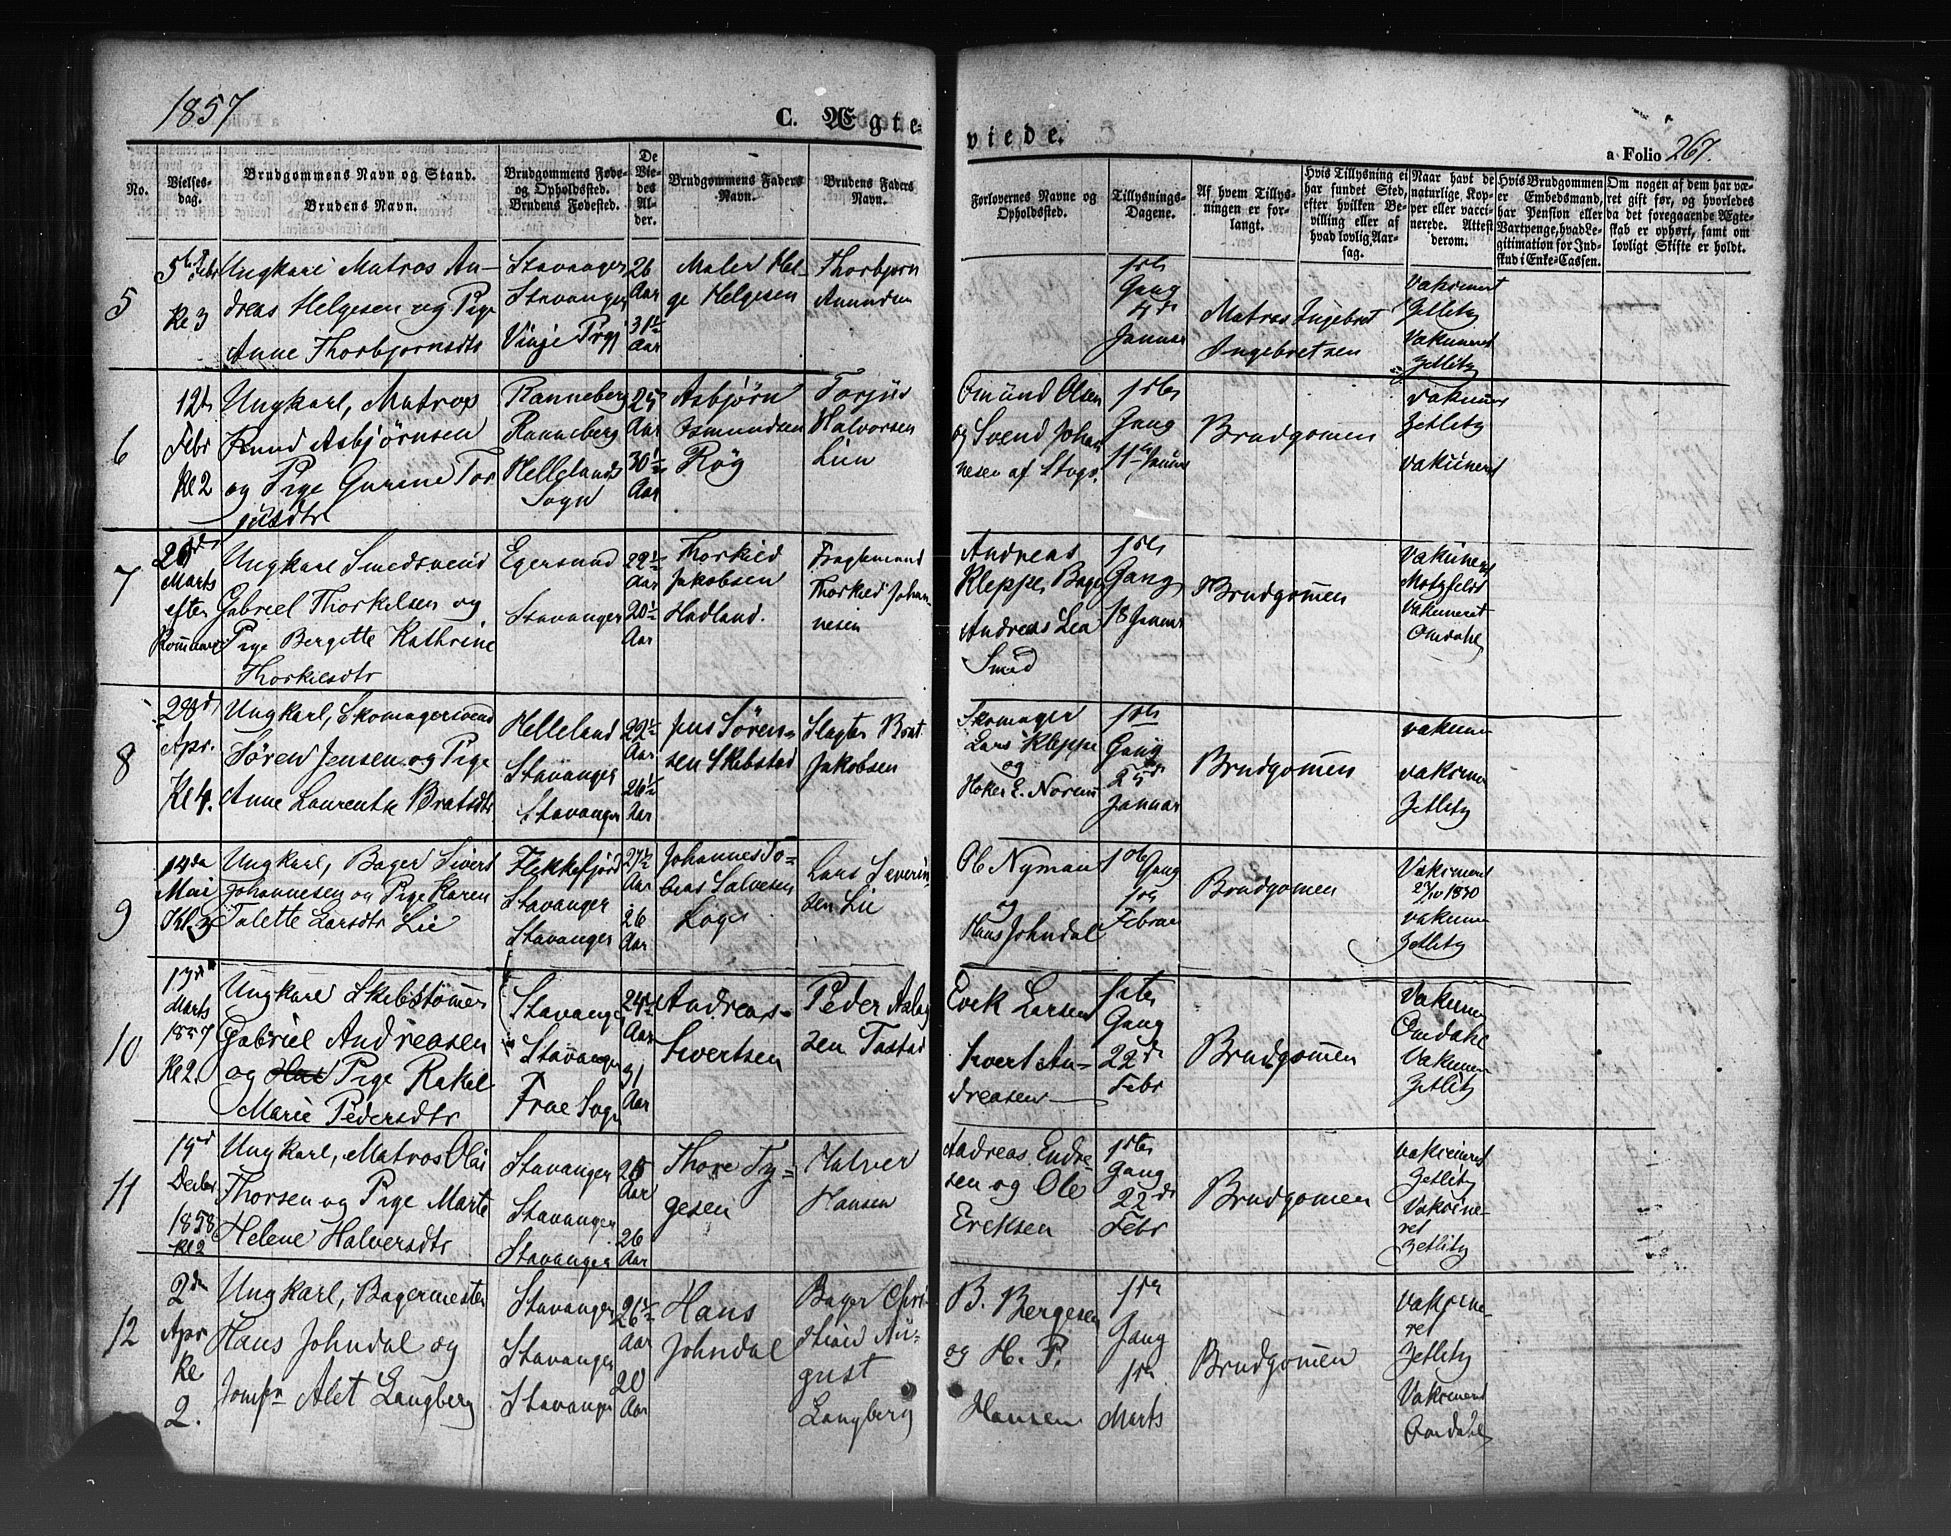 1857
C. Ægte-
viede.
a Folio 267.
No.
Vielses-
dag.
Brudgommens Navn og Stand.
Brudens Navn.
Brudgommens Føde-
og Opholdssted.
Brudens Fødested.
De
Vie-
des
Al-
der.
Brudgommens Faders
Navn.
Brudens Faders
Navn.
Forlovernes Navne og
Opholdssted.
Tillysnings-
Dagene.
Af hvem Tillys-
ningen er for-
langt.
Hvis Tillysning ei
har fundet Sted,
efter hvilken Be-
villing eller af
hvad lovlig Aar-
sag.
Naar havt de
naturlige Kop-
per eller vacci-
nerede. Attest
derom.
Hvis Brudgommen
er Embedsmand,
har Pension eller
Vartpenge, hvad Le-
gitimation for Ind-
skud i Enke-Cassen.
Om nogen af dem har væ-
ret gift før, og hvorledes
da det foregaaende Ægte-
skab er ophørt, samt om
lovligt Skifte er holdt.
5
Febr
Kl 3
Ungkarl Matros An-
dreas Helgesen og Pige
Anne Thorbjørnsdtr
Stavanger
Stavanger
Vinje Prgj
26
Aar
31½
Aar
Maler Hel-
ge Helgesen
Thorbjørn
Amundsen
1ste
Gang
4de
Januar
Matros Ingebret
Ingebretsen
Vakcineret
Zetlitz
Vakcineret
Zetlitz
6
12te
Febr
Kl 2
Ungkarl, Matros
Knud Asbjørnsen
og Pige Gurine Tor
jusdtr
Ranneberg
Ranneberg
Hellelands
Sogn
25
Aar
30½
Aar
Asbjørn
Osmundsen
Røg
Torjus
Halvorsen
Lien
Omund Olsen
og Svend Johan
nesen af Stavgr.
1ste
Gang
11te Januar
Brudgomen
Vakciner
Zetlitz
Vakcineret
7
26de
Marts
efter
Ungkarl Smedsvend
Gabriel Thorkelsen og
Pige Bergitte Kathrine
Thorkilsdtr
Egersund
Stavanger
22½
Aar
20½
Aar
Thorkild
Jakobsen
Hadland.
Fragtemand
Thorkild Johan-
nesen
Andreas
Kleppe Bager
Andreas Lea
Smed
1ste
Gang
18 Januar
Brudgomen
Vakcineret
Motzfeldt
Vakcineret
Omdahl
8
28de
Apr.
Kl 4.
Ungkarl, Skomagersvend
Søren Jensen og Pige
Anne Laurentze Bratsdtr
Helleland
Stavanger
Stavanger
22½
Aar
26½
Aar
Jens Søren-
sen Skibstad
Slagter Brat
Jakobsen
Skomager
Lars Kleppe
og
Høker E. Norem
1ste
Gang
25de
Januar
Brudgomen
vakcine
vakcine
Zetlitz
9
14da
Mai
Kl. 3
Ungkarl, Bager Sivert
Johannesen og Pige Karen
Talette Larsdtr Lie
Flekkefjord
Stavanger
Stavanger
27½
Aar
26
Aar
Johannes To-
bias Salvesen
Loge
Lars Severin
sen Lie
Ob Nyman
og
Hans Johndal
1ste Gang
1ste
Febrar
Brudgomen
Vakcineret
1830
vakcine
Zetlitz
10
13de
Marts
1857
Kl 2.
Ungkarl Skibstømer
Gabriel Andreasen
og Pige Rakel
Marie Pedersdtr
Stavanger
Stavanger
Frue Sogn
24½
Aar
31
Aar
Andreas
Sivertsen
Peder Aslag
sen Tastad
Erek Larsen
Sivert An-
dreasen
1ste
Gang
22de
Febr
Brudgomen
Vakcine
Omdahl
Vakcine
Zetlitz
11
19d
Decbr
1858
Kl 2
Ungkarl, Matros Olai
Thorsen og Pige Marte
Helene Halversdtr
Stavanger
Stavanger
Stavanger
25
Aar
26
Aar
Thore Ty-
gesen
Halver
Hansen
Andreas Endre-
sen og Ole
Ereksen
1ste
Gang
22de
Febr
Brudgomen
vakcineret
Zetlitz
Vakcine-
ret
Zetlitz
12
2den
Apr
Kl
2.
Ungkarl, Bagermester
Hans Johndal og
Jomfr Alet Langberg
Stavanger
Stavanger
Stavanger
26½
Aar
20
Aar
Hans
Johndal
Bager Chri-
stian Au-
gust
Langberg
B. Bergesen
og H. P.
Hansen
1ste
Gang
1ste
Marts
Brudgomen
Vakcine-
ret
Zetlitz
Vakcineret
Omdahl